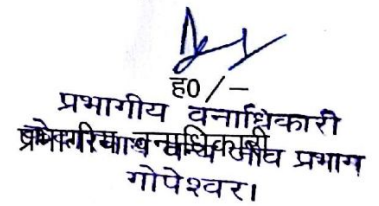 ह0/-
प्रभागीय वनाधिकारी
प्रभागीय वनाधिकारी
वन्य जीव प्रभाग
गोपेश्वर।